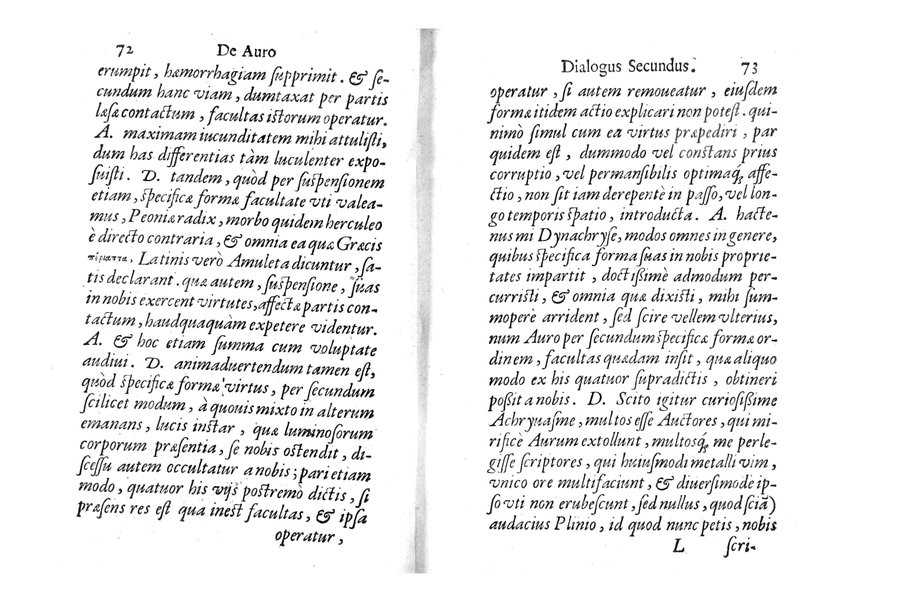 72 De Auro
erumpit, hæmorrhagiam ſupprimit. & ſe-
cundum hanc viam, dumtaxat per partis
læſæ contactum, facultas iſtorum operatur.
A. maximam iucunditatem mihi attuliſti,
dum has differentias tàm luculenter expo-
ſuiſti. D. tandem, quòd per ſuſpenſionem
etiam, ſpecificæ formæ facultate vti valea-
mus, Peoniæ radix, morbo quidem herculeo
è directo contraria, & omnia ea quæ Græcis
πίριαπτα, Latinis verò Amuleta dicuntur, ſa-
tis declarant. quæ autem, ſuſpenſione, ſuas
in nobis exercent virtutes, affectæ partis con-
tactum, haudquaquàm expetere videntur.
A. & hoc etiam ſumma cum voluptate
audiui. D. animaduertendum tamen eſt,
quòd ſpecificæ formæ virtus, per ſecundum
ſcilicet modum, à quouis mixto in alterum
emanans, lucis inſtar, quæ luminoſorum
corporum præſentia, ſe nobis oſtendit, di-
ſceſſu autem occultatur a nobis; pari etiam
modo, quatuor his vijs poſtremò dictis, ſi
præſens res eſt qua ineſt facultas, & ipſa
operatur,
Dialogus Secundus. 73
operatur, ſi autem remoueatur, eiuſdem
formæ itidem actio explicari non poteſt. qui-
nimò ſimul cum ea virtus præpediri, par
quidem eſt, dummodo vel conſtans prius
corruptio, vel permanſibilis optimaq́; affe-
ctio, non ſit iam derepentè in paſſo, vel lon-
go temporis ſpatio, introducta. A. hacte-
nus mi Dynachryſe, modos omnes in genere,
quibus ſpecifica forma ſuas in nobis proprie-
tates impartit, doctiſsimè admodum per-
curriſti, & omnia quæ dixiſti, mihi ſum-
mopere arrident, ſed ſcire vellem vlterius,
num Auro per ſecundum ſpecificæ formæ or-
dinem, facultas quædam inſit, quæ aliquo
modo ex his quatuor ſupradictis, obtineri
poſsit a nobis. D. Scito igitur curioſiſsime
Achryuaſme, multos eſſe Auctores, qui mi-
rificè Aurum extollunt, multosq́; me perle-
giſſe ſcriptores, qui huiuſmodi metalli vim,
vnico ore multifaciunt, & diuerſimodè ip-
ſo vti non erubeſcunt, ſed nullus, quod ſciã)
audacius Plinio, id quod nunc petis, nobis
L ſcri-